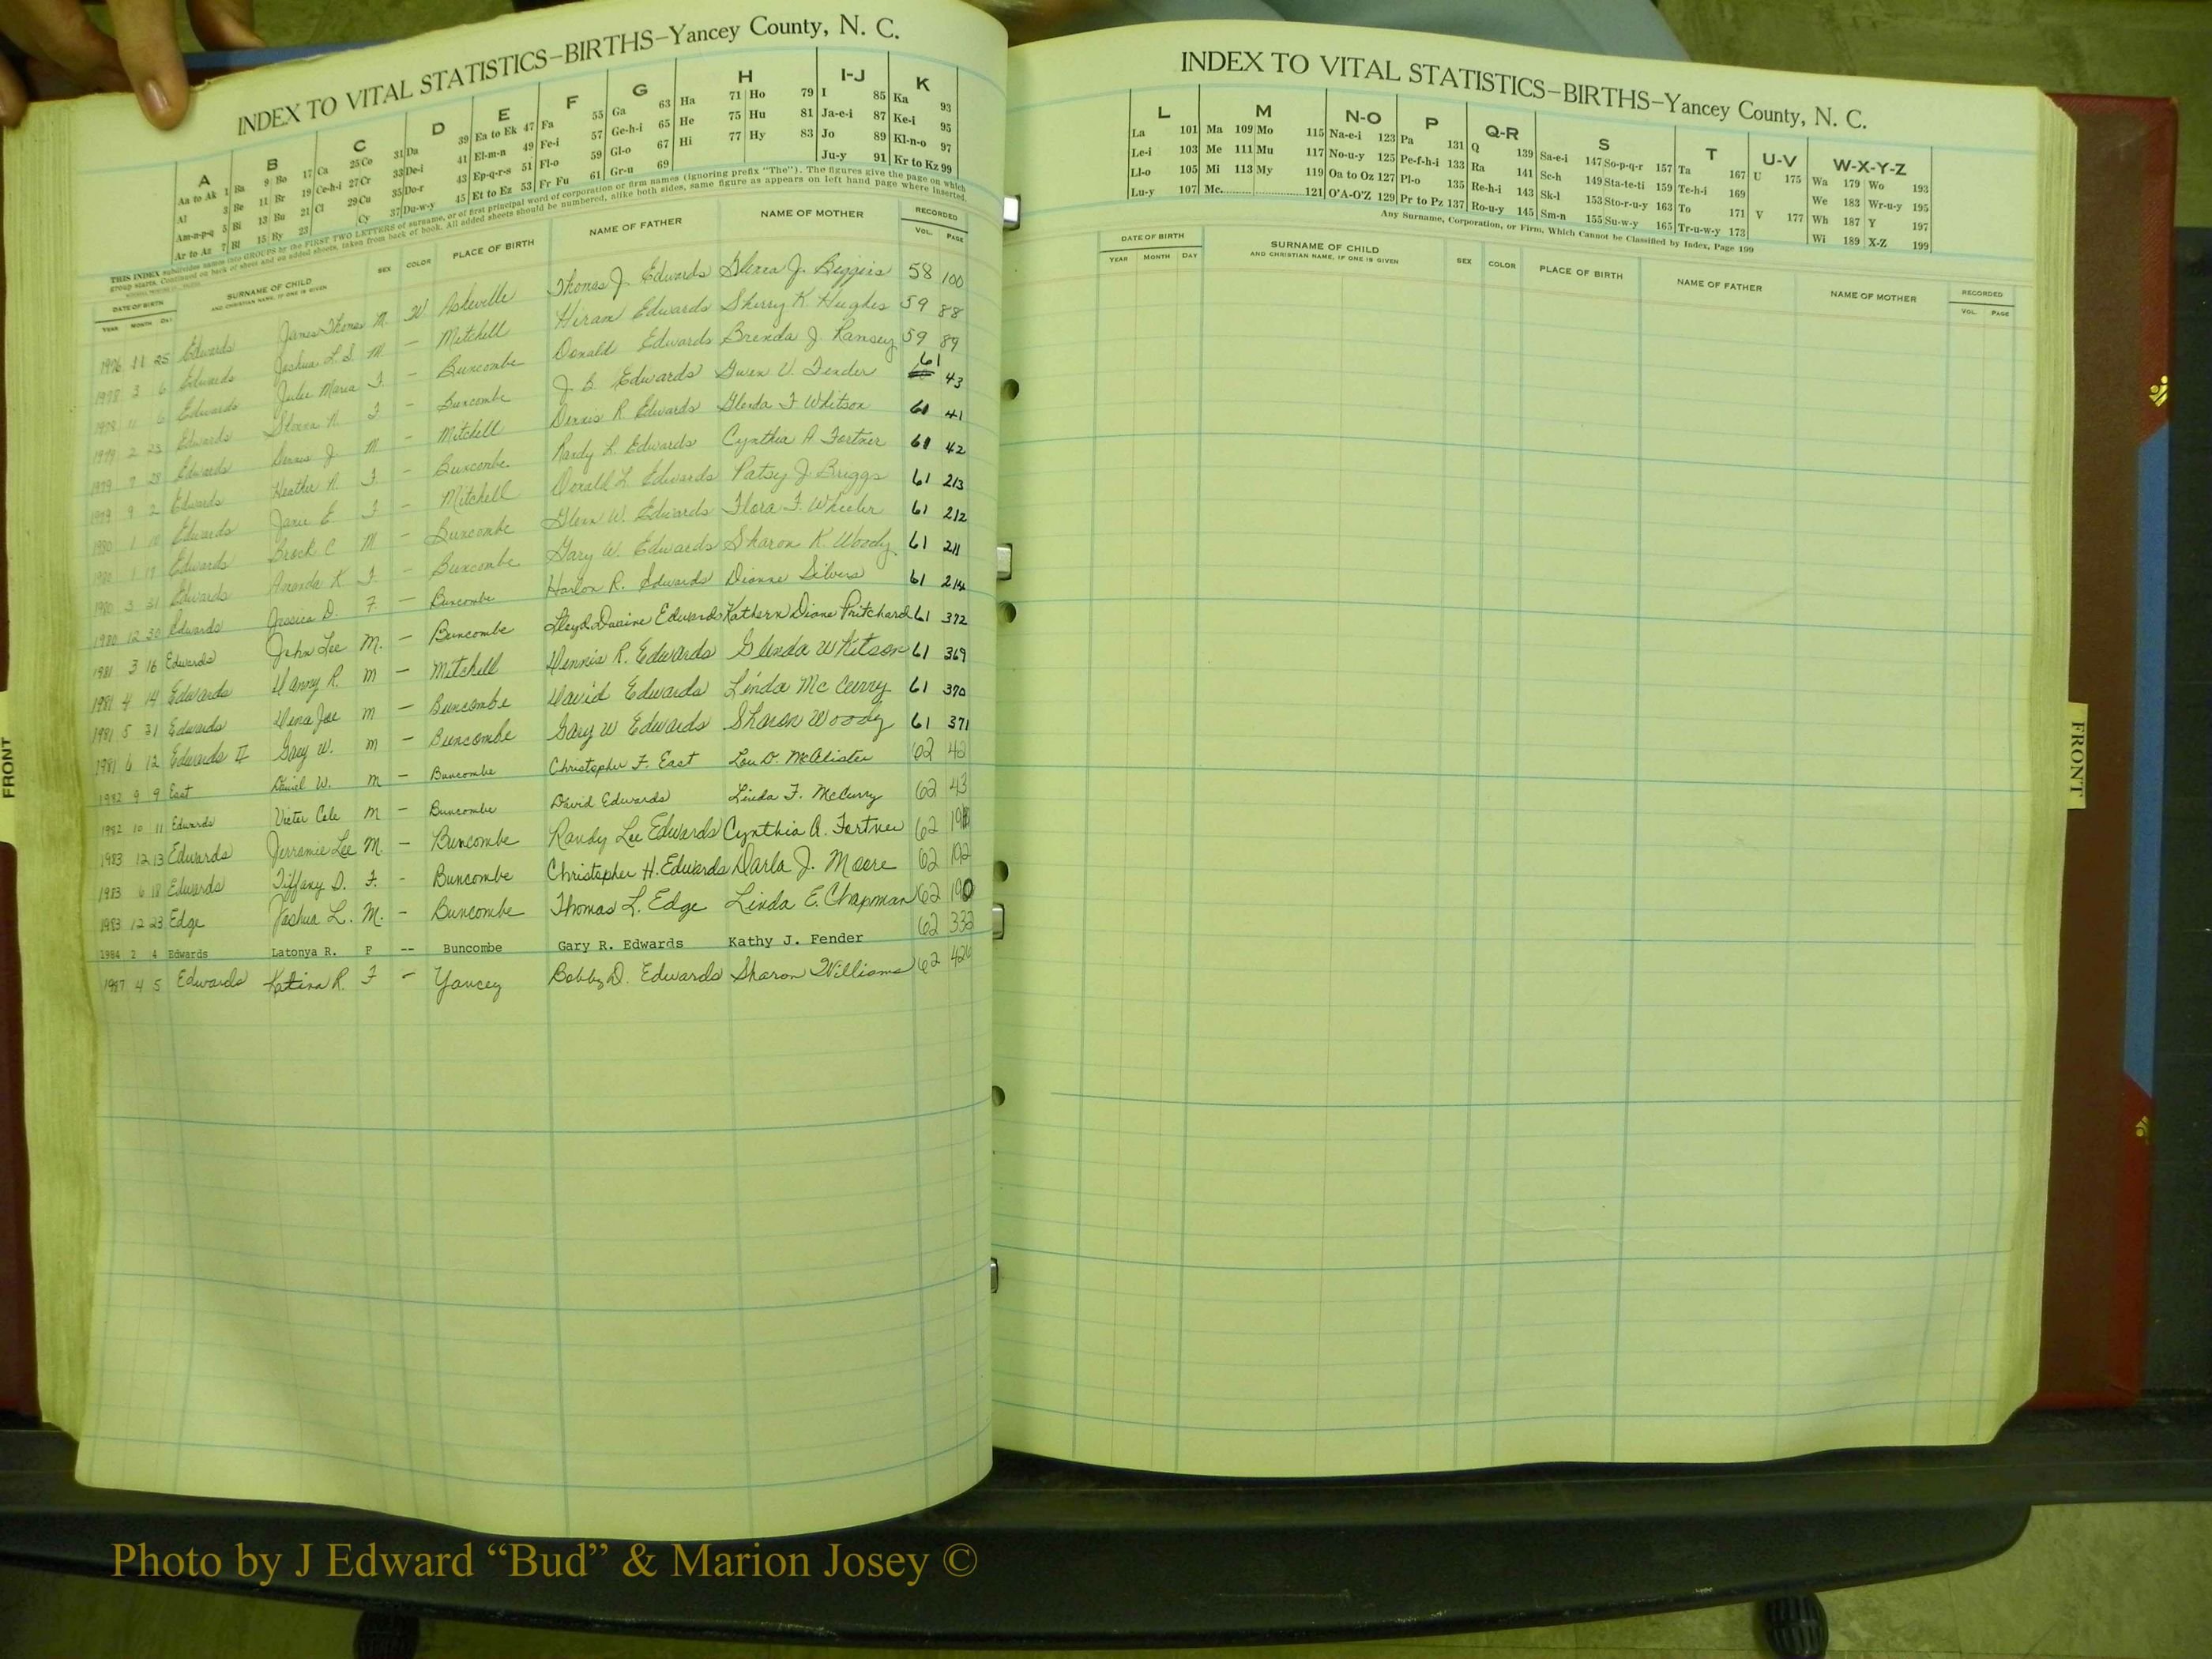 INDEX TO VITAL STATISTICS–BIRTHS–Yancey County, N. C.
A B C D E F G H I-J K
Aa to Ak 1 Ba 9 Bo 17 Ca 25 Co 31 Da 39 Ea to Ek 47 Fa 55 Ga 63 Ha 71 Ho 79 I 85 Ka 93
Al 3 Be 11 Br 19 Ce-h-i 27 Cr 33 De-i 41 El-m-n 49 Fe-i 57 Ge-h-i 65 He 75 Hu 81 Ja-e-i 87 Ke-i 95
Am-n-p-q 5 Bi 13 Bu 21 Cl 29 Cu 35 Do-r 43 Ep-q-r-s 51 Fl-o 59 Gl-o 67 Hi 77 Hy 83 Jo 89 Kl-n-o 97
Ar to Az 7 Bl 15 By 23 Cy 37 Du-w-y 45 Et to Ez 53 Fr Fu 61 Gr-u 69 Ju-y 91 Kr to Kz 99
THIS INDEX subdivides names into GROUPS by the FIRST TWO LETTERS of surname, or of first principal word of corporation or firm names (ignoring prefix "The"). The figures give the page on which
group starts. Continued on back of sheet and on added sheets, taken from back of book. All added sheets should be numbered, alike both sides, same figure as appears on left hand page where inserted.
DATE OF BIRTH SURNAME OF CHILD SEX COLOR PLACE OF BIRTH NAME OF FATHER NAME OF MOTHER RECORDED
YEAR MONTH DAY AND CHRISTIAN NAME, IF ONE IS GIVEN VOL. PAGE
1976 11 25 Edwards James Thomas M. W Asheville Thomas J. Edwards Glena J. Biggers 58 100
1978 3 6 Edwards Joshua L. S. M — Mitchell Hiram Edwards Sherry K. Hughes 59 88
1978 11 6 Edwards Julie Maria F. — Buncombe Donald Edwards Brenda J. Ramsey 59 89
1979 2 23 Edwards N. F — Buncombe J. B. Edwards Gwen V. Fender 61 43
1979 7 28 Edwards Dennis J. M. — Mitchell Dennis R. Edwards Glenda F Whitson 61 41
1979 9 2 Edwards Heather N. F. — Buncombe Randy L. Edwards Cynthia A Fortner 61 42
1980 1 Edwards Janie E F. — Mitchell Donald L. Edwards Patsy J. Briggs 61 213
1980 1 Edwards Brock C M — Buncombe Glenn W. Edwards Flora F. Wheeler 61 212
1980 3 31 Edwards Amanda K F. — Buncombe Gary W. Edwards Sharon K. Woody 61 211
1980 12 30 Edwards Jessica D. F. — Buncombe Harlon R. Edwards Dianne Silvers 61 214
1981 3 16 Edwards John Lee M. — Buncombe Lloyd Duaine Edwards Kathern Diane Pritchard 61 372
1981 4 14 Edwards Danny R. m — Mitchell Dennis R. Edwards Glenda Whitson 61 369
1981 5 31 Edwards Joe m — Buncombe David Edwards Linda McCurry 61 370
1981 6 12 Edwards II Gary W. m — Buncombe Gary W Edwards Sharon Woody 61 371
1982 9 9 East Daniel W. m — Buncombe Christopher F. East Lou D. McAlister 62 42
1982 10 11 Edwards Victor Cole M — Buncombe David Edwards Linda F. McCurry 62 43
1983 12 13 Edwards Jerramie Lee M. — Buncombe Randy Lee Edwards Cynthia A. Fortner 62 191
1983 6 18 Edwards Tiffany D. F. - Buncombe Christopher H. Edwards Darla J. Moore 62 192
1983 12 23 Edge Joshua L. M. - Buncombe Thomas L. Edge Linda E. Chapman 62 190
1984 2 4 Edwards Latonya R. F -- Buncombe Gary R. Edwards Kathy J. Fender 62 332
1987 4 5 Edwards Katina R. F — Yancey Bobby D. Edwards Sharon Williams 62 426
INDEX TO VITAL STATISTICS–BIRTHS–Yancey County, N. C.
L M N-O P Q-R S T U-V W-X-Y-Z
La 101 Ma 109 Mo 115 Na-e-i 123 Pa 131 Q 139 Sa-e-i 147 So-p-q-r 157 Ta 167 U 175 Wa 179 Wo 193
Le-i 103 Me 111 Mu 117 No-u-y 125 Pe-f-h-i 133 Ra 141 Sc-h 149 Sta-te-ti 159 Te-h-i 169 We 183 Wr-u-y 195
Ll-o 105 Mi 113 My 119 Oa to Oz 127 Pl-o 135 Re-h-i 143 Sk-l 153 Sto-r-u-y 163 To 171 V 177 Wh 187 Y 197
Lu-y 107 Mc 121 O'A-O'Z 129 Pr to Pz 137 Ro-u-y 145 Sm-n 155 Su-w-y 165 Tr-u-w-y 173 Wi 189 X-Z 199
Any Surname, Corporation, or Firm, Which Cannot be Classified by Index, Page 199
DATE OF BIRTH SURNAME OF CHILD SEX COLOR PLACE OF BIRTH NAME OF FATHER NAME OF MOTHER RECORDED
YEAR MONTH DAY AND CHRISTIAN NAME, IF ONE IS GIVEN VOL. PAGE
FRONT
FRONT
Photo by J Edward “Bud” & Marion Josey ©